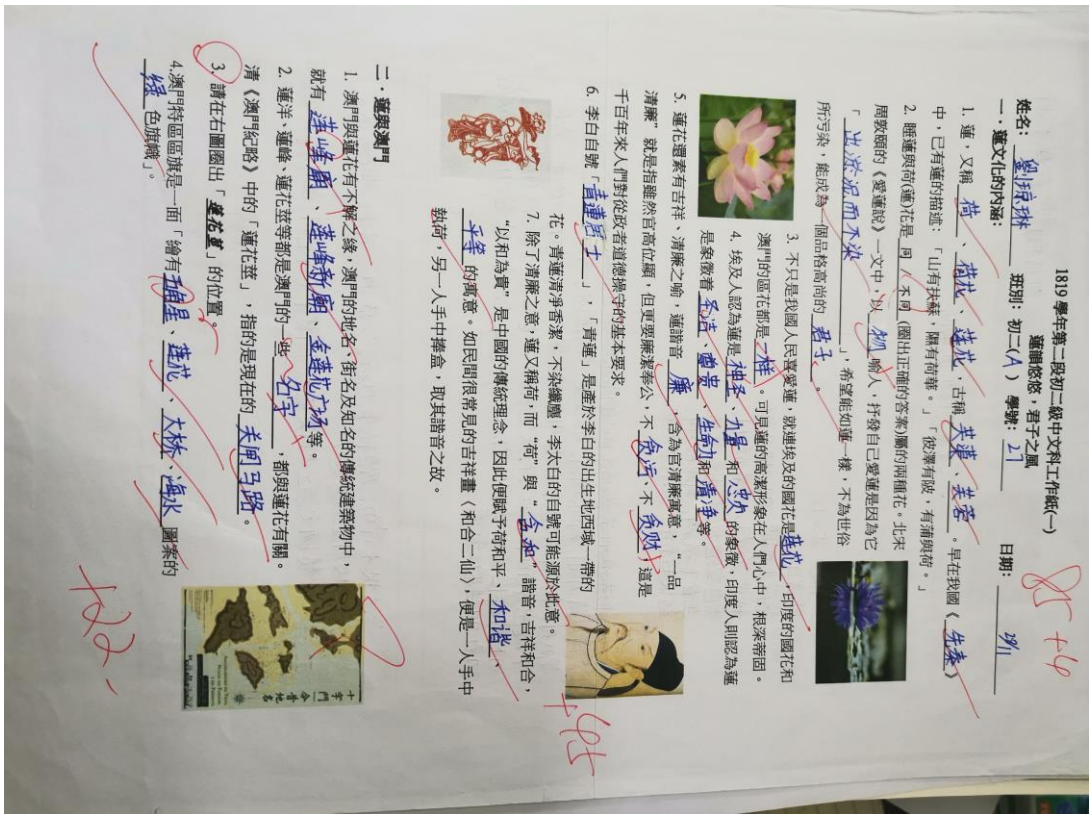 1819 學年第二段初二級中文科工作紙(一)
蓮韻悠悠．君子之風
姓名： 班別：初二(A) 學號：27 日期：29/11
85+6
一．蓮文化的內涵：
1. 蓮，又稱 荷、荷花、莲花，古稱 芙蕖、芙蓉。早在我國《先秦》
中，已有蓮的描述：「山有扶蘇，隰有荷華。」「彼澤有陂，有蒲與荷。」
2. 睡蓮與荷(蓮)花是 同 / 不同 (圈出正確的答案)屬的兩種花。北宋
周敦頤的《愛蓮說》一文中，以 物 喻人，抒發自己愛蓮是因為它
「出淤泥而不染」，希望能如蓮一樣，不為世俗
所污染，能成為一個品格高尚的 君子。
3. 不只是我國人民喜愛蓮，就連埃及的國花是 莲花，印度的國花和
澳門的區花都是一样。可見蓮的高潔形象在人們心中，根深蒂固。
4. 埃及人認為蓮是 神圣、力量 和 忠 的象徵，印度人則認為蓮
是象徵着 圣洁、尊贵、生命力 和 清净 等。
5. 蓮花還素有吉祥、清廉之喻，蓮諧音 廉，含為官清廉寓意，“一品
清廉”就是指雖然官高位顯，但更要廉潔奉公，不 贪污、不 贪财，這是
千百年來人們對從政者道德操守的基本要求。
6. 李白自號「青莲居士」，「青蓮」是產於李白的出生地西域一帶的
花。青蓮清淨香潔，不染纖塵，李太白的自號可能源於此意。
+45
7. 除了清廉之意，蓮又稱荷，而“荷”與“合和”諧音，吉祥和合，
“以和為貴”是中國的傳統理念，因此便賦予荷和平、和谐、
平等 的寓意。如民間很常見的吉祥畫《和合二仙》，便是一人手中
執荷，另一人手中捧盒，取其諧音之故。
二．蓮與澳門
1. 澳門與蓮花有不解之緣，澳門的地名、街名及知名的傳統建築物中，
就有 莲峰庙、莲峰新廟、金莲花广场 等。
2. 蓮洋、蓮峰、蓮花莖等都是澳門的一些 名字，都與蓮花有關。
清《澳門記略》中的「蓮花莖」，指的是現在的 关闸马路。
3. 請在右圖圈出「蓮花莖」的位置。
4.澳門特區區旗是一面「繪有 五星、莲花、大桥、海水 圖案的
绿 色旗幟」。
十字門
今昔地名
+22